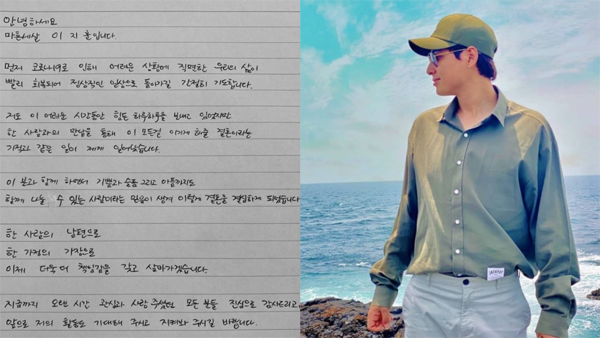 안녕하세요
마흔세살 이 지 훈입니다.
먼저 코로나19로 인해 어려운 상황에 직면한 우리의 삶이
빨리 회복되어 정상적인 일상으로 돌아가길 간절히 기도합니다.
저도 이 어려운 시간동안 힘든 하루하루를 보내고 있었지만
한 사람과의 만남을 통해 이 모든걸 이기게 해줄 결혼이라는
기적과 같은 일이 제게 일어났습니다.
이 분과 함께 하면서 기쁨과 슬픔 그리고 아픔까지도
함께 나눌 수 있는 사람이라는 믿음이 생겨 이렇게 결혼을 결심하게 되었습니다
한 사람의 남편으로
한 가정의 가장으로
이제 더욱더 책임감을 갖고 살아가겠습니다.
지금까지 오랜 시간 관심과 사랑 주셨던 모든 분들 진심으로 감사드리고
앞으로 저의 활동도 기대해 주시고 지켜봐 주시길 바랍니다.